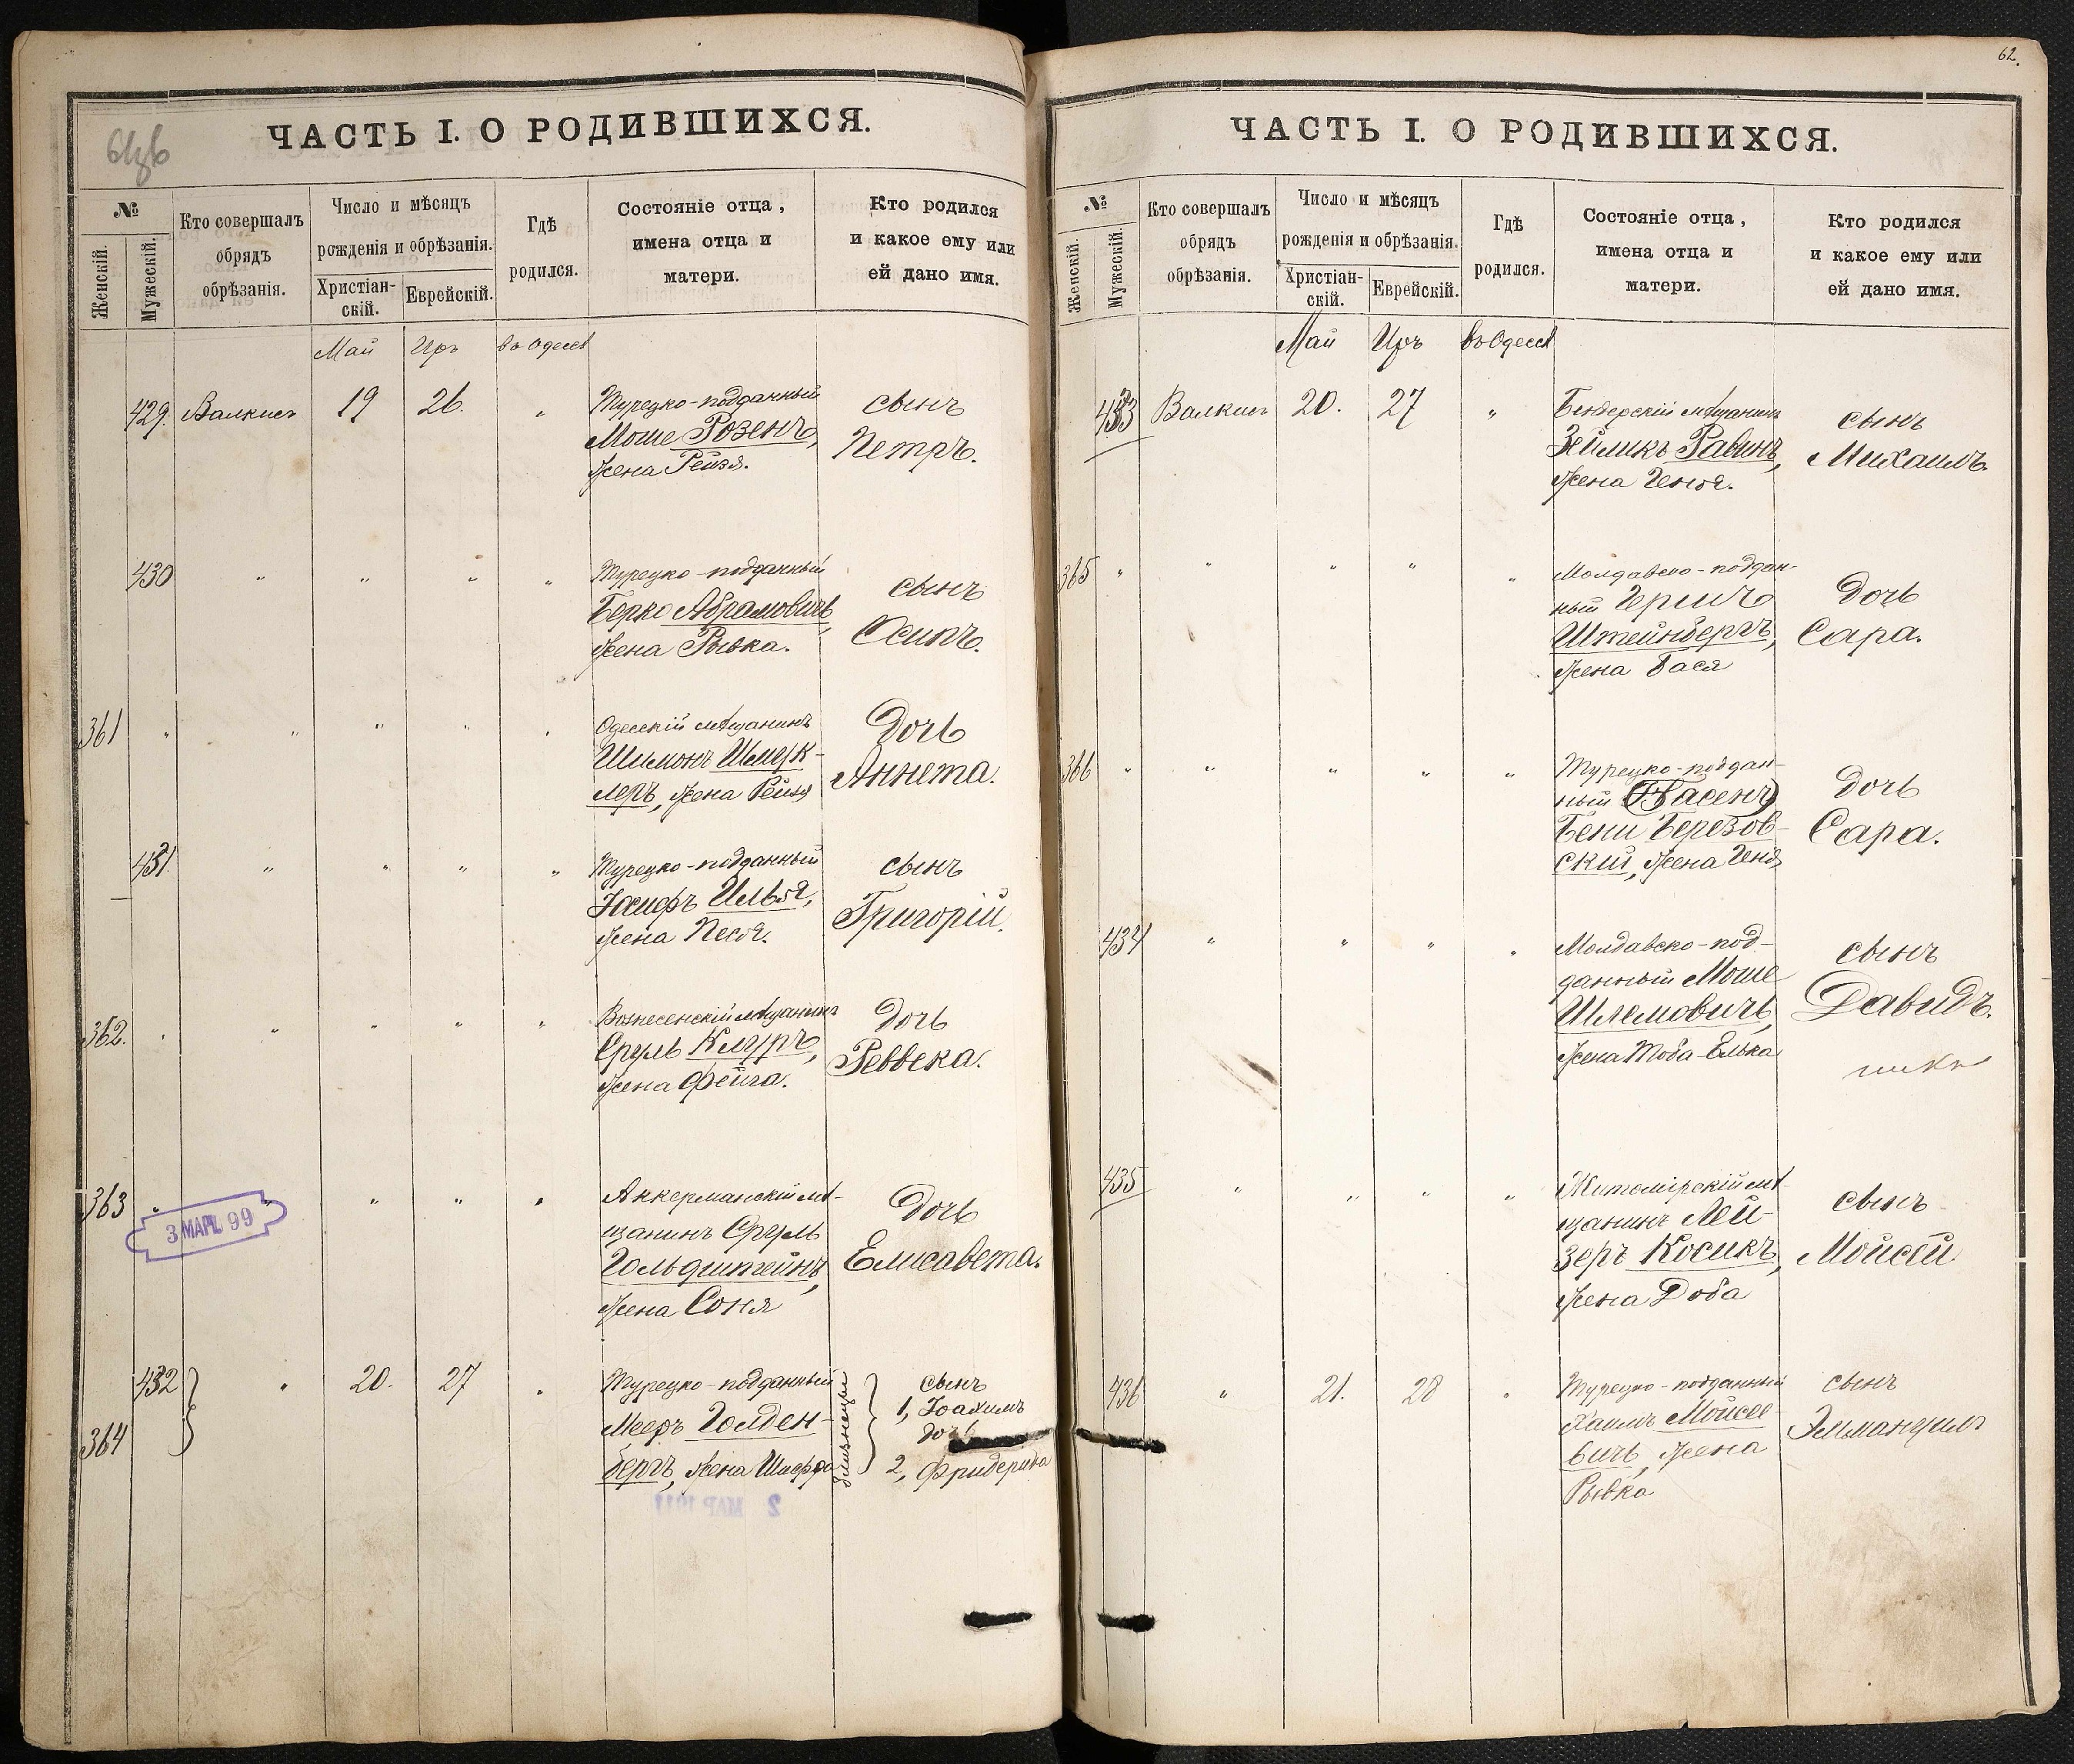 61 об
ЧАСТЬ I. О РОДИВШИХСЯ.
№
Женскій.
Мужескій.
Кто совершалъ
обрядъ
обрѣзанія.
Число и мѣсяцъ
рожденія и обрѣзанія.
Христіан-
скій.
Еврейскій.
Гдѣ
родился.
Состояніе отца,
имена отца и
матери.
Кто родился
и какое ему или
ей дано имя.
Май Иръ въ Одессѣ
429. Валкисъ 19 26. "
Турецко-подданный
Моше Розенъ,
жена Рейзя.
сынъ
Петръ.
430 " " " "
Турецко-подданный
Берко Абрамовичъ,
жена Рывка.
сынъ
Осипъ.
361 " " " " "
Одесскій мѣщанинъ
Шимонъ
леръ, жена Рейзя
дочь
Аннета.
431. " " " "
Турецко-подданный
Іосифъ Илья,
жена Песя.
сынъ
Григорій.
362. " " " " "
Вознесенскій мѣщанинъ
Сруль
жена Фейга.
дочь
Реввека.
363 " " " "
Аккерманскій мѣ-
щанинъ Сруль
Гольдштейнъ,
жена Соня
дочь
Елисавета.
3 МАР. 99
432
364
" 20. 27 "
Турецко-подданный
Мееръ Голден-
бергъ, жена
близнецы
сынъ
1, Іоахимъ
дочь
2, Фридерика
2 МАР 1911
62.
ЧАСТЬ I. О РОДИВШИХСЯ.
№
Женскій.
Мужескій.
Кто совершалъ
обрядъ
обрѣзанія.
Число и мѣсяцъ
рожденія и обрѣзанія.
Христіан-
скій.
Еврейскій.
Гдѣ
родился.
Состояніе отца,
имена отца и
матери.
Кто родился
и какое ему или
ей дано имя.
Май Иръ въ Одессѣ
433 Валкисъ 20. 27 "
Бендерскій мѣщанинъ
Зейликъ Равинъ,
жена Геня.
сынъ
Михаилъ.
365 " " " " "
Молдавско-поддан-
ный Гершъ
Штейнбергъ,
жена Бася
дочь
Сара.
366 " " " " "
Турецко-поддан-
ный
Бени Березов-
скій, жена Геня
дочь
Сара.
434 " " " "
Молдавско-под-
данный Моше
Шлемовичъ,
жена Тоба-Елька
сынъ
Давидъ.
435 " " " "
Житомірскій мѣ-
щанинъ Лей-
зеръ Косикъ,
жена Доба
сынъ
Мойсей
436 " 21. 28 "
Турецко-подданный
Хаимъ Мойсее-
вичъ, жена
Рывка
сынъ
Эммануилъ